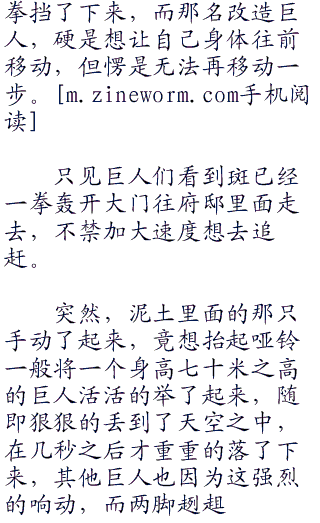 拳挡了下来，而那名改造巨
人，硬是想让自己身体往前
移动，但愣是无法再移动一
步。[m.zineworm.com手机阅
读]
只见巨人们看到斑已经
一拳轰开大门往府邸里面走
去，不禁加大速度想去追
赶。
突然，泥土里面的那只
手动了起来，竟想抬起哑铃
一般将一个身高七十米之高
的巨人活活的举了起来，随
即狠狠的丢到了天空之中，
在几秒之后才重重的落了下
来，其他巨人也因为这强烈
的响动，而两脚趔趄